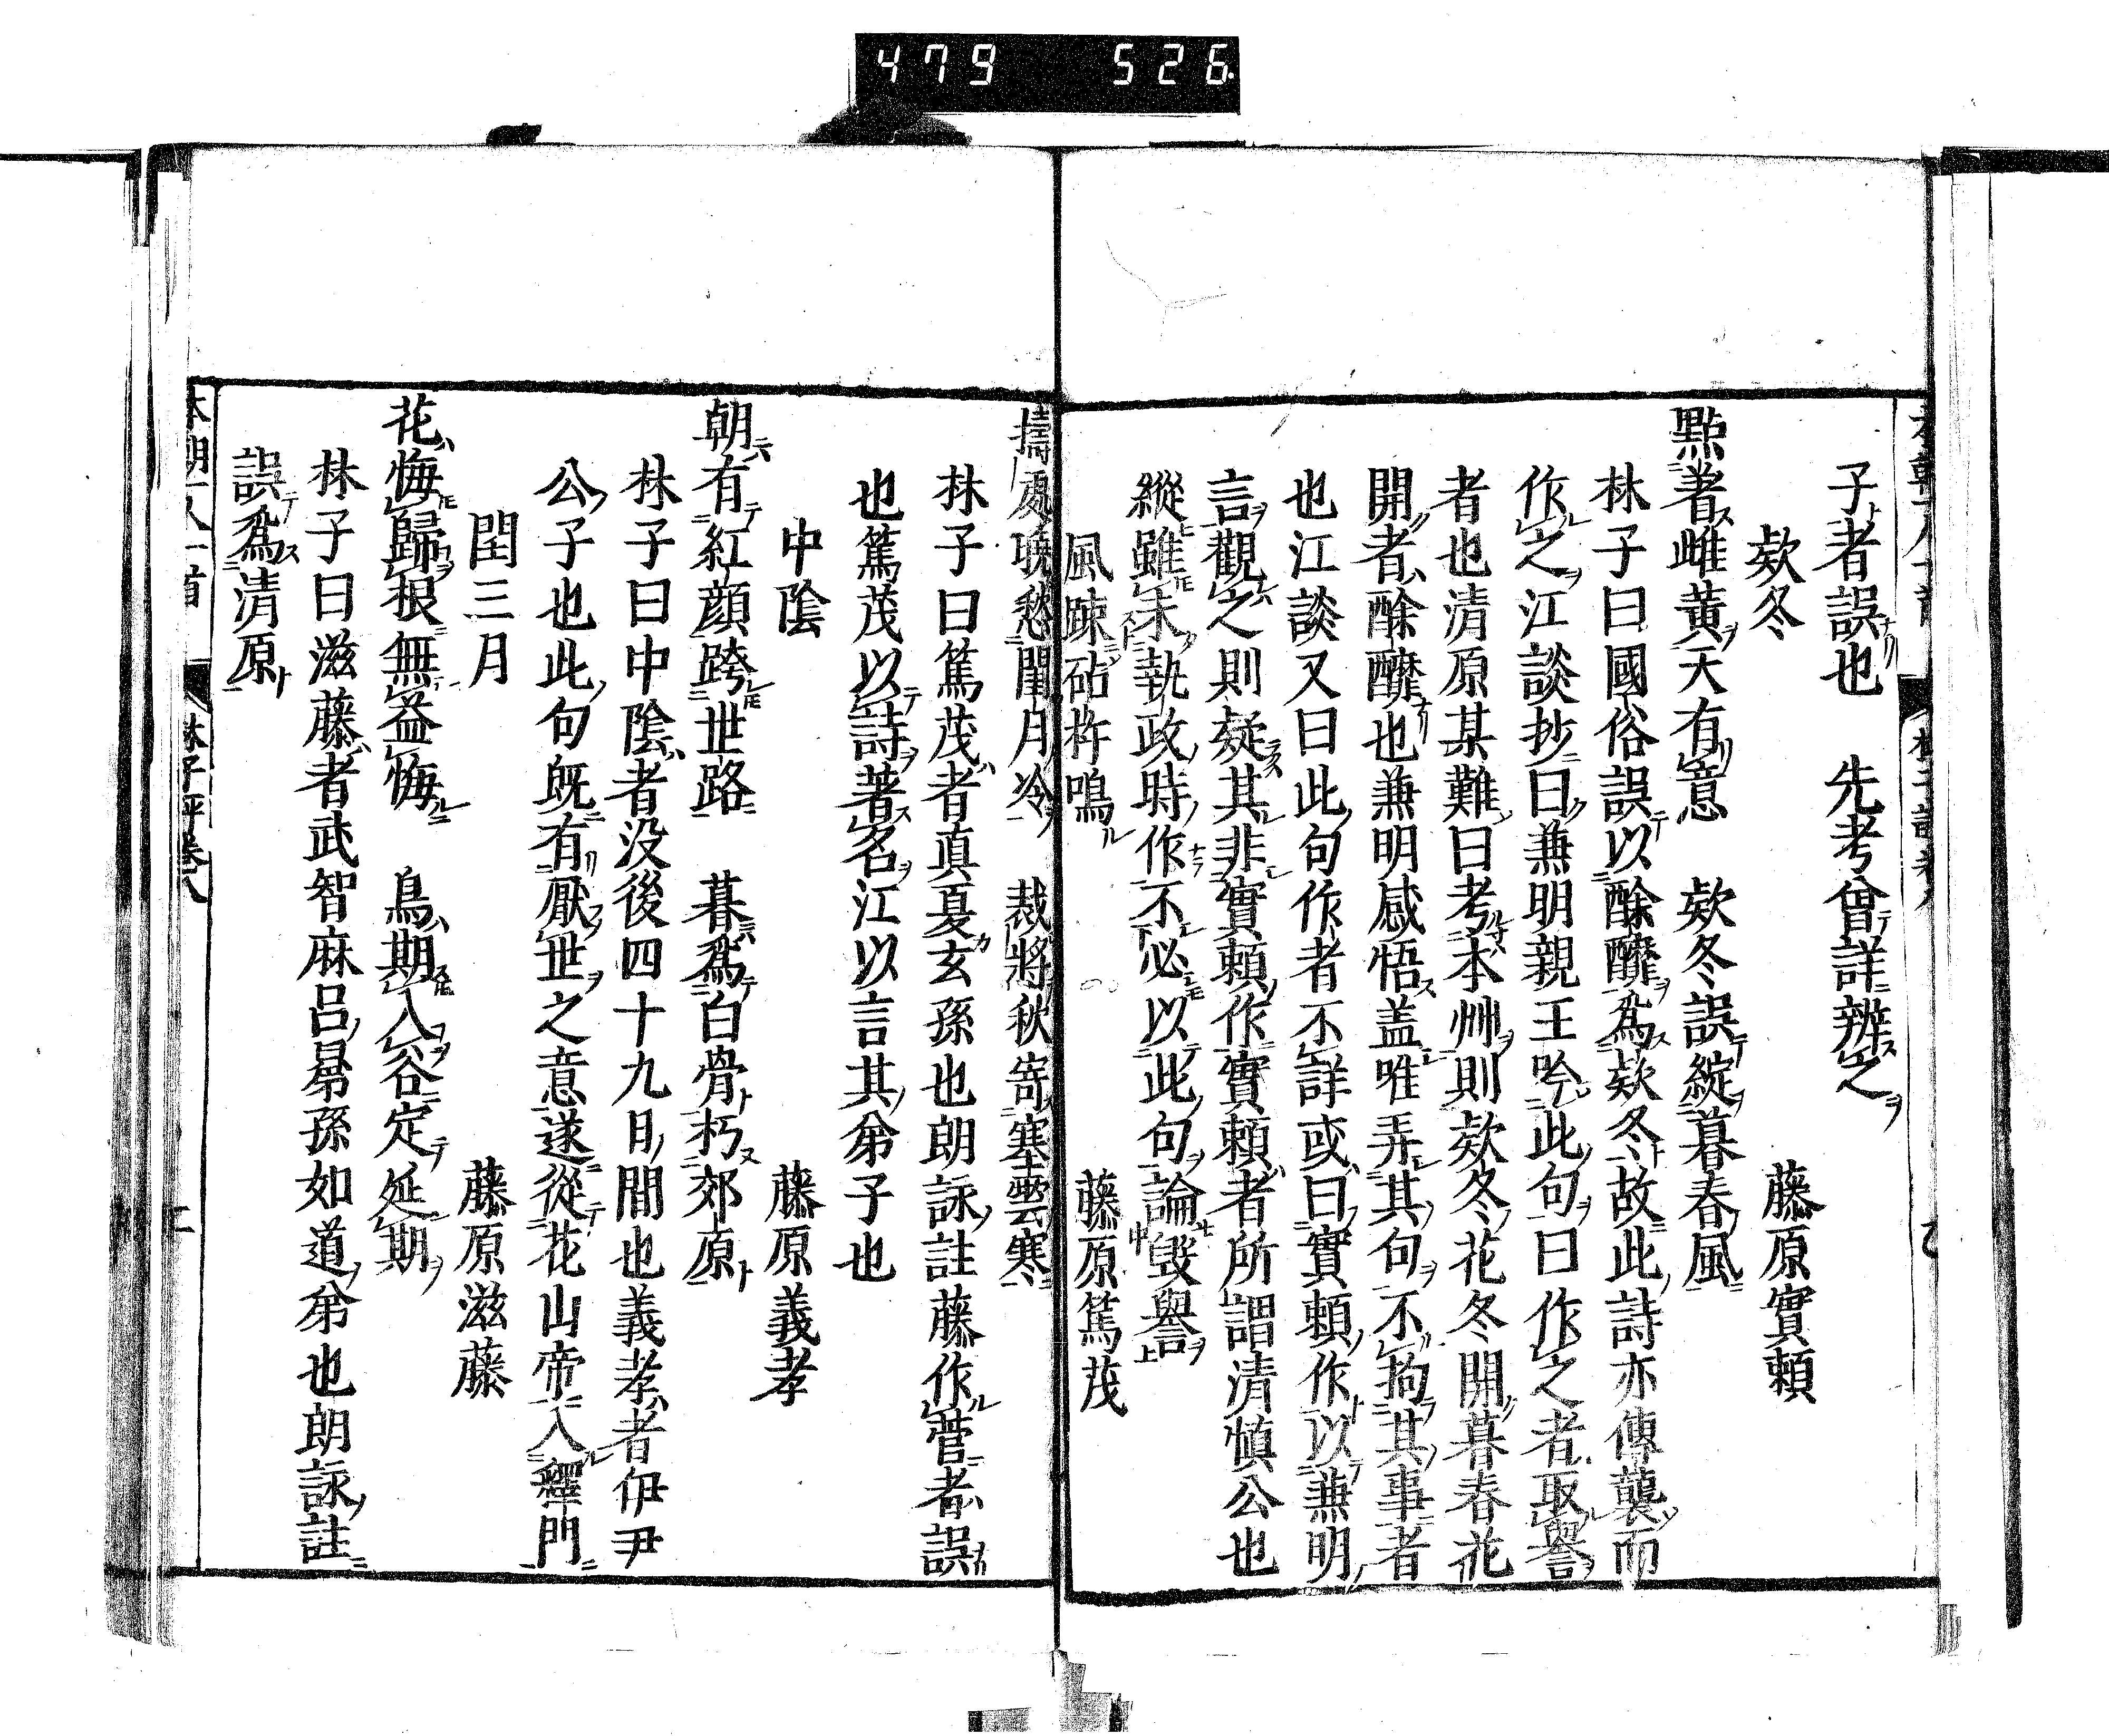 479 526
子者誤也　先考曾詳辨之
欵冬　藤原實頼
點著雌黄天有意　欵冬誤綻暮春風
林子曰國俗誤以酴醿爲欵冬故此詩亦傳襲而
作之江談抄曰兼明親王吟此句曰作之者取譽
者也清原某難曰考本艸則欵冬花冬開暮春花
開者酴醿也兼明感悟盖唯弄其句不拘其事者
也江談又曰此句作者不詳或曰實頼作以兼明
言觀之則疑其非實頼作實頼者所謂清慎公也
縱雖未執政時作不必以此句論毀譽
風踈砧杵鳴　藤原篤茂
擣處曉愁閨月冷　裁將秋寄塞雲寒
林子曰篤茂者真夏玄孫也朗詠註藤作菅者誤
也篤茂以詩著名江以言其弟子也
中陰　藤原義孝
朝有紅顔跨世路　暮爲白骨朽郊原
林子曰中陰者没後四十九日間也義孝者伊尹
公子也此句既有厭世之意遂從花山帝入釋門
閏三月　藤原滋藤
花悔歸根無益悔　鳥期入谷定延期
林子曰滋藤者武智麻呂曷孫如道弟也朗詠註
誤爲清原
本朝一人一首　林子評卷八